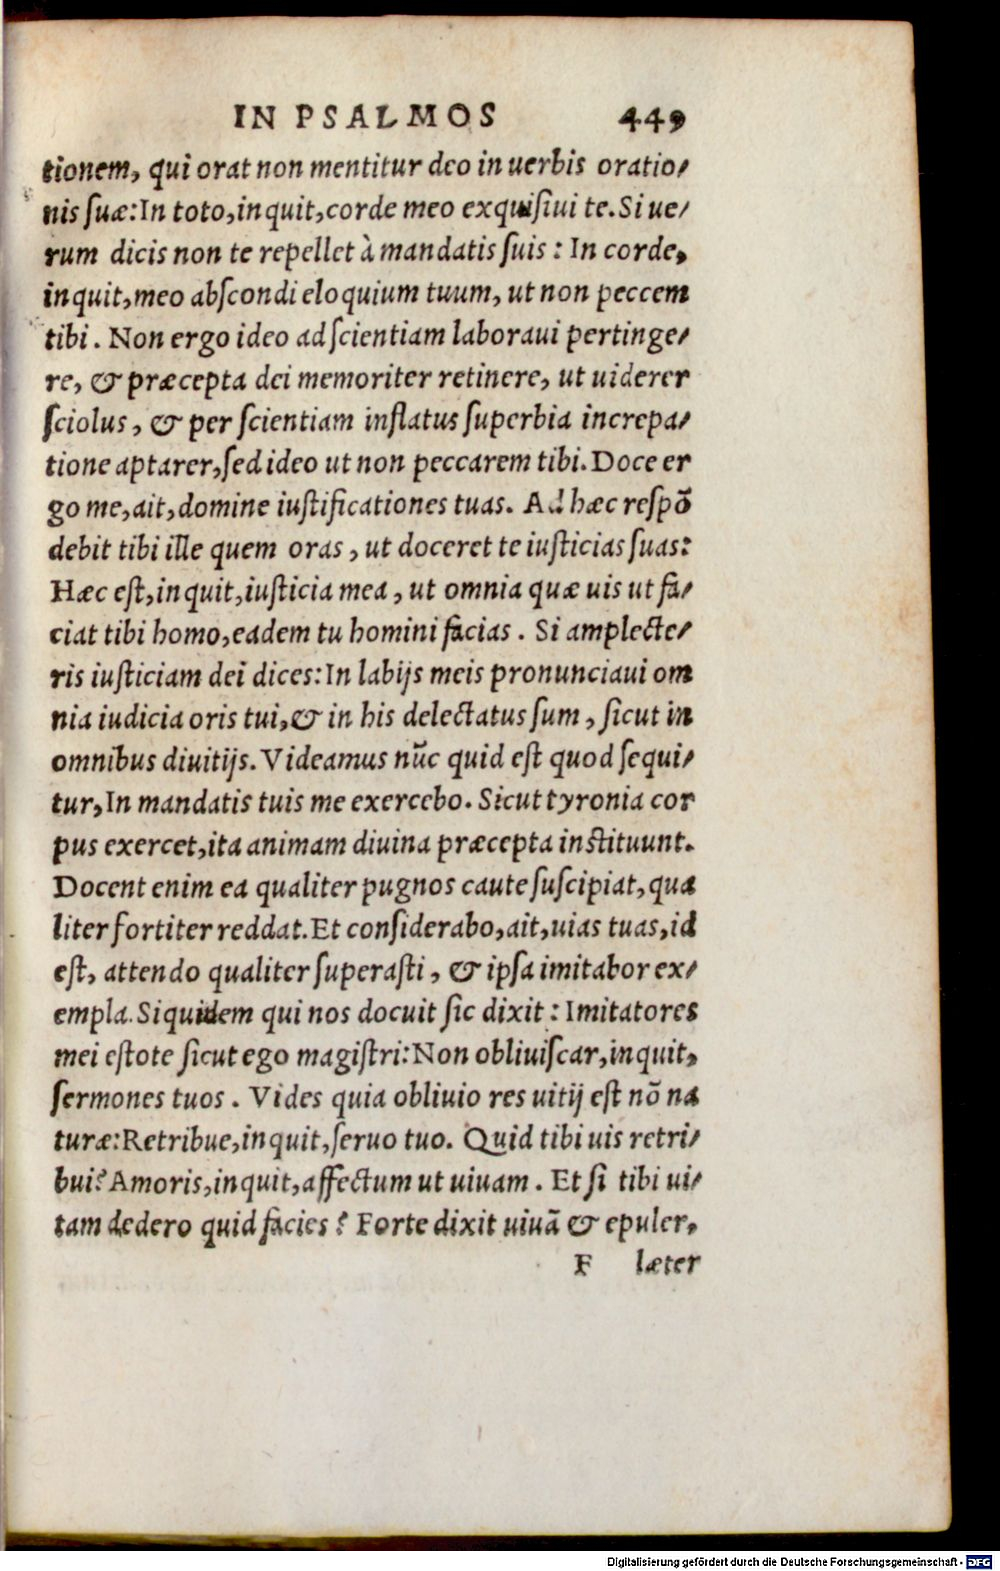 IN PSALMOS 449
tionem, qui orat non mentitur deo in uerbis oratio/
nis ſuæ:In toto,inquit,corde meo exquiſiui te.Si ue/
rum dicis non te repellet à mandatis ſuis : In corde,
inquit,meo abſcondi eloquium tuum, ut non peccem
tibi . Non ergo ideo ad ſcientiam laboraui pertinge/
re, & præcepta dei memoriter retinere, ut uiderer
ſciolus, & per ſcientiam inflatus ſuperbia increpa/
tione aptarer,ſed ideo ut non peccarem tibi.Doce er
go me,ait,domine iuſtificationes tuas. Ad hæc reſpõ
debit tibi ille quem oras, ut doceret te iuſticias ſuas:
Hæc eſt,inquit,iuſticia mea, ut omnia quæ uis ut fa/
ciat tibi homo,eadem tu homini facias . Si amplecte/
ris iuſticiam dei dices:In labijs meis pronunciaui om
nia iudicia oris tui,& in his delectatus ſum, ſicut in
omnibus diuitijs.Videamus nũc quid eſt quod ſequi/
tur,In mandatis tuis me exercebo. Sicut tyronia cor
pus exercet,ita animam diuina præcepta inſtituunt.
Docent enim ea qualiter pugnos caute ſuſcipiat,qua
liter fortiter reddat.Et conſiderabo,ait,uias tuas,id
eſt, attendo qualiter ſuperaſti, & ipſa imitabor ex/
empla.Siquidem qui nos docuit ſic dixit : Imitatores
mei eſtote ſicut ego magiſtri:Non obliuiſcar,inquit,
ſermones tuos . Vides quia obliuio res uitij eſt nõ na
turæ:Retribue,inquit,ſeruo tuo. Quid tibi uis retri/
bui? Amoris,inquit,affectum ut uiuam . Et ſi tibi ui/
tam dedero quid facies? Forte dixit uiuã & epuler,
F læter
Digitalisierung gefördert durch die Deutsche Forschungsgemeinschaft - DFG